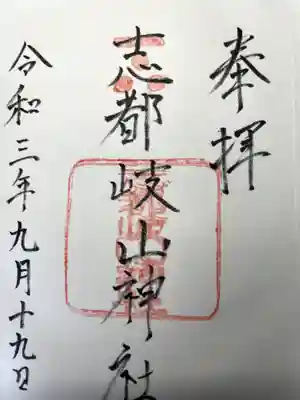 奉拝
志都岐山神社
令和三年九月十九日